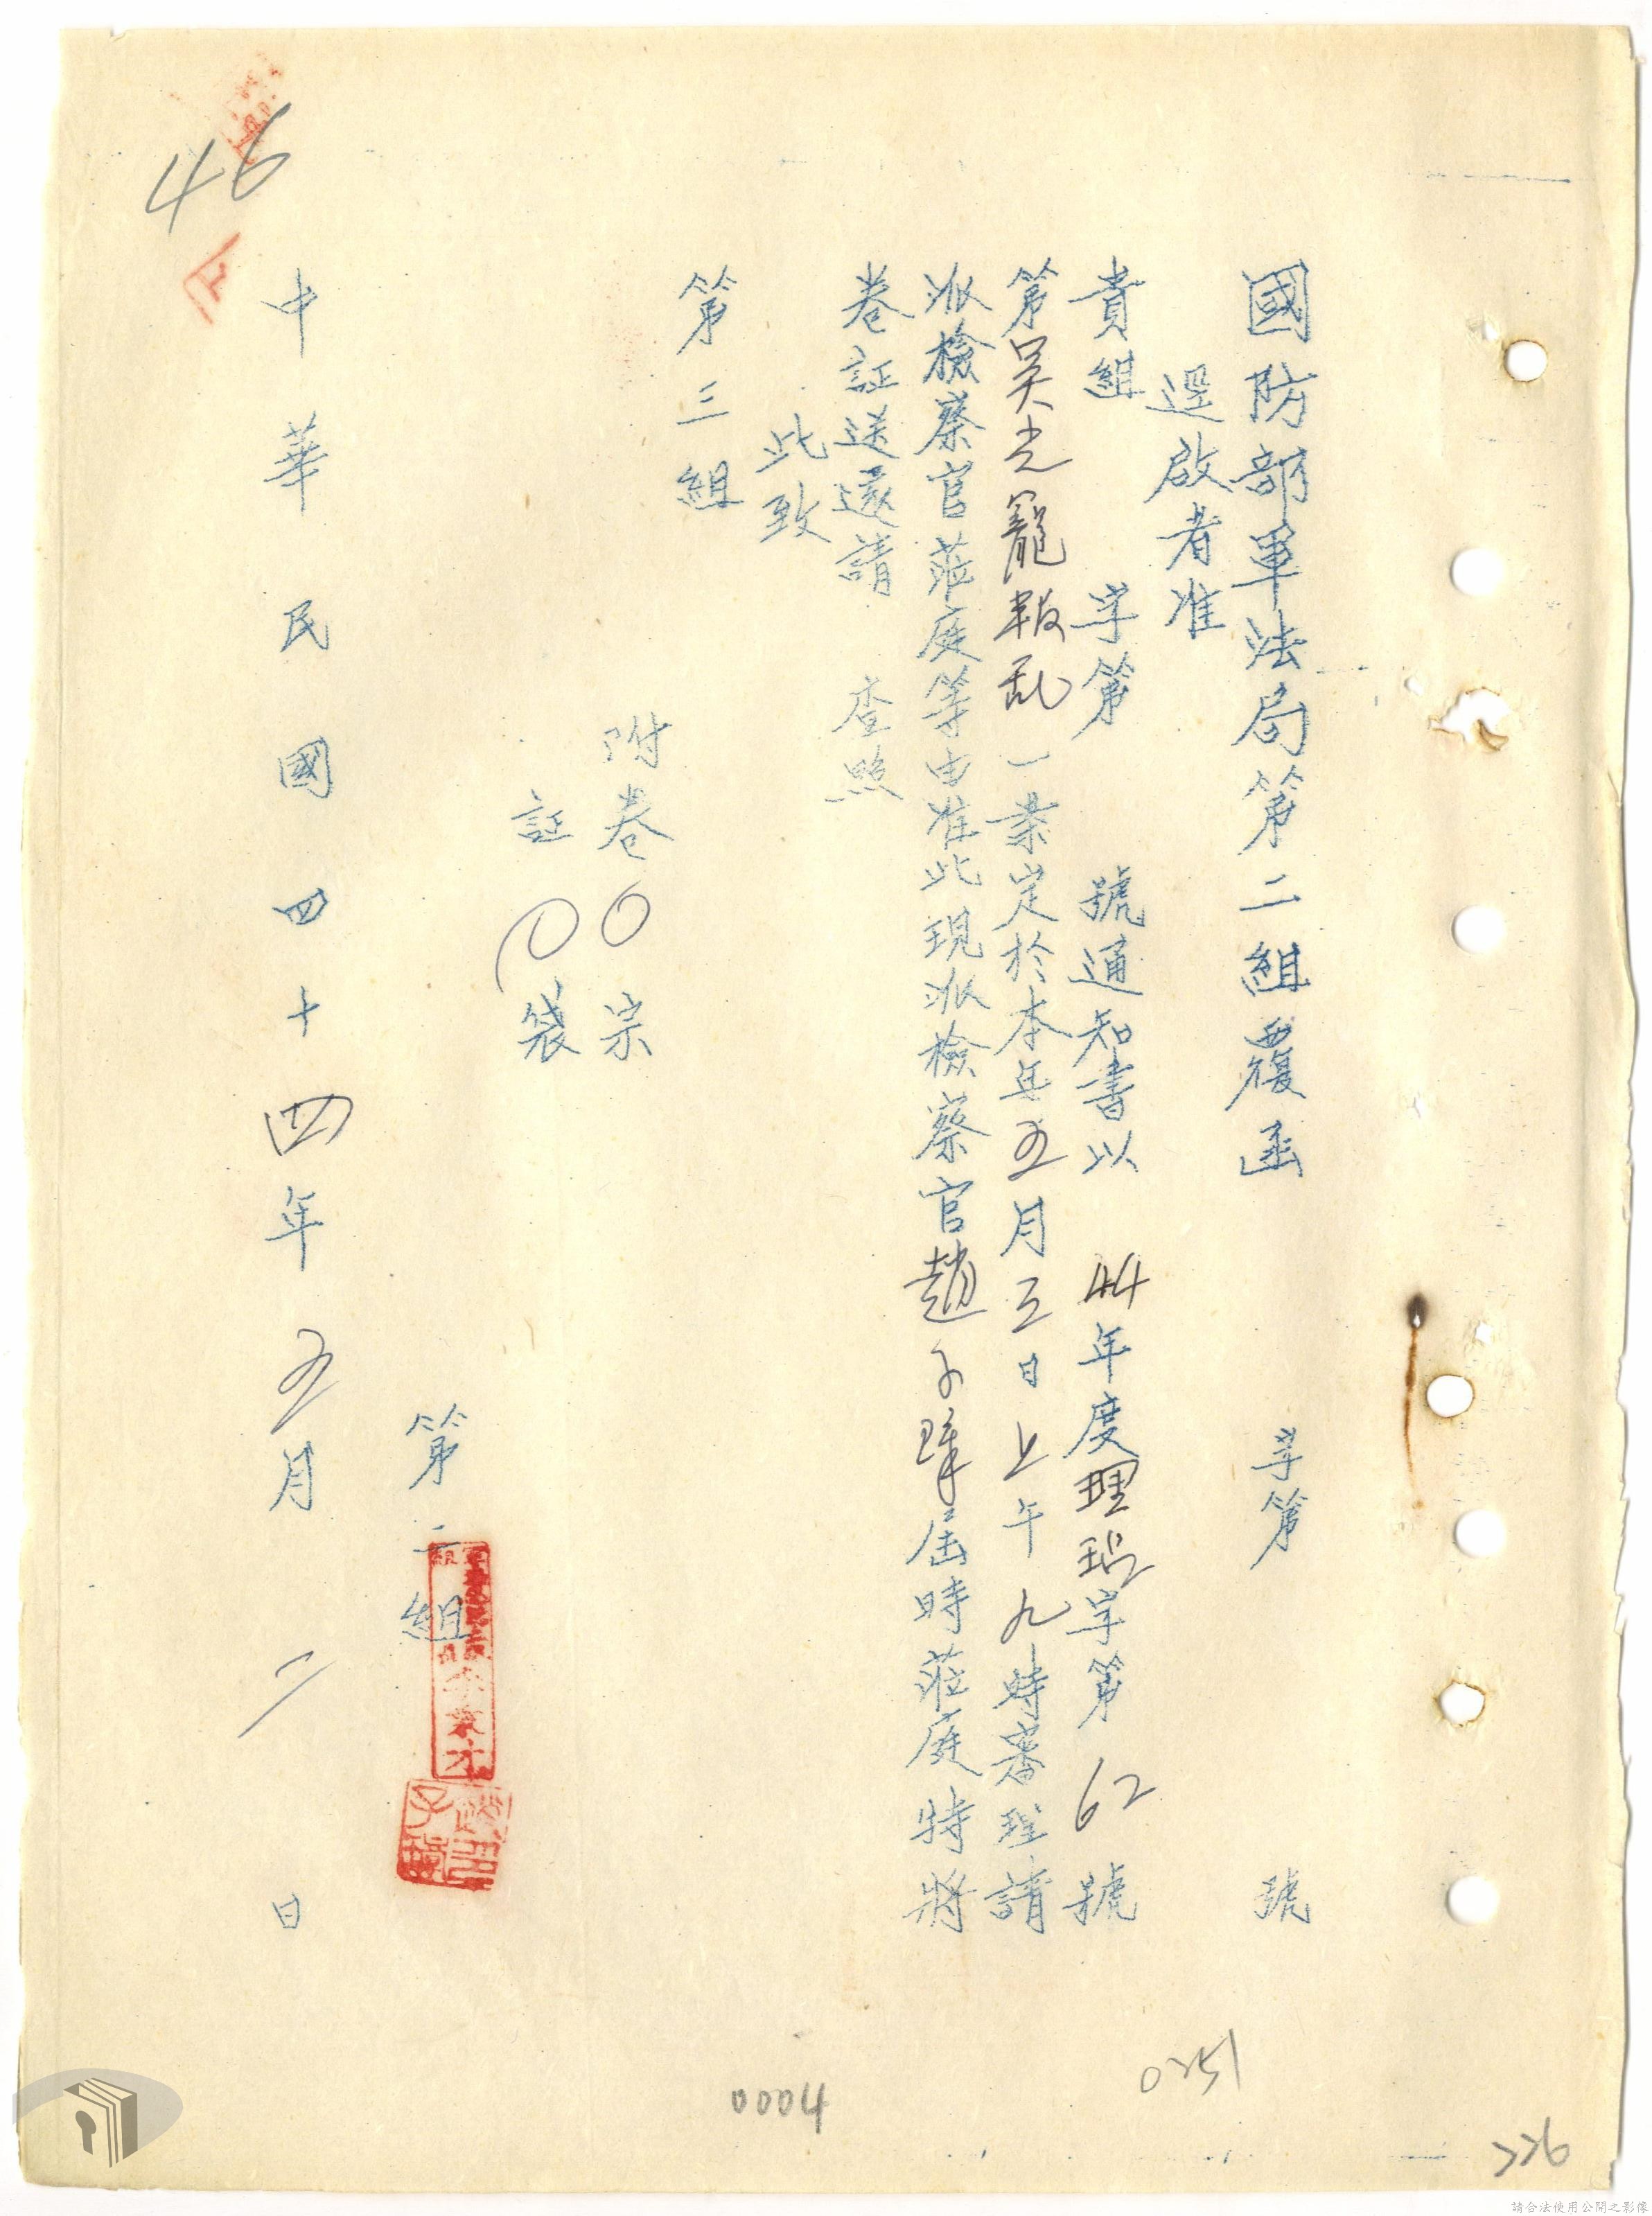 國防部軍法局第二組覆函 字第 號
逕啟者准
貴組 字第 號通知書以 44年度理 字第 62 號
第吳光 叛乱 一案定於本年五月三日上午九時審理請
派檢察官蒞庭等由准此現派檢察官趙子 屆時蒞庭特將
卷証送還請 查照
此致
第三組
附卷 〇 宗
証 〇 袋
第二組
中華民國四十四年五月二日
46
0251
0004
226
請合法使用公開之影像